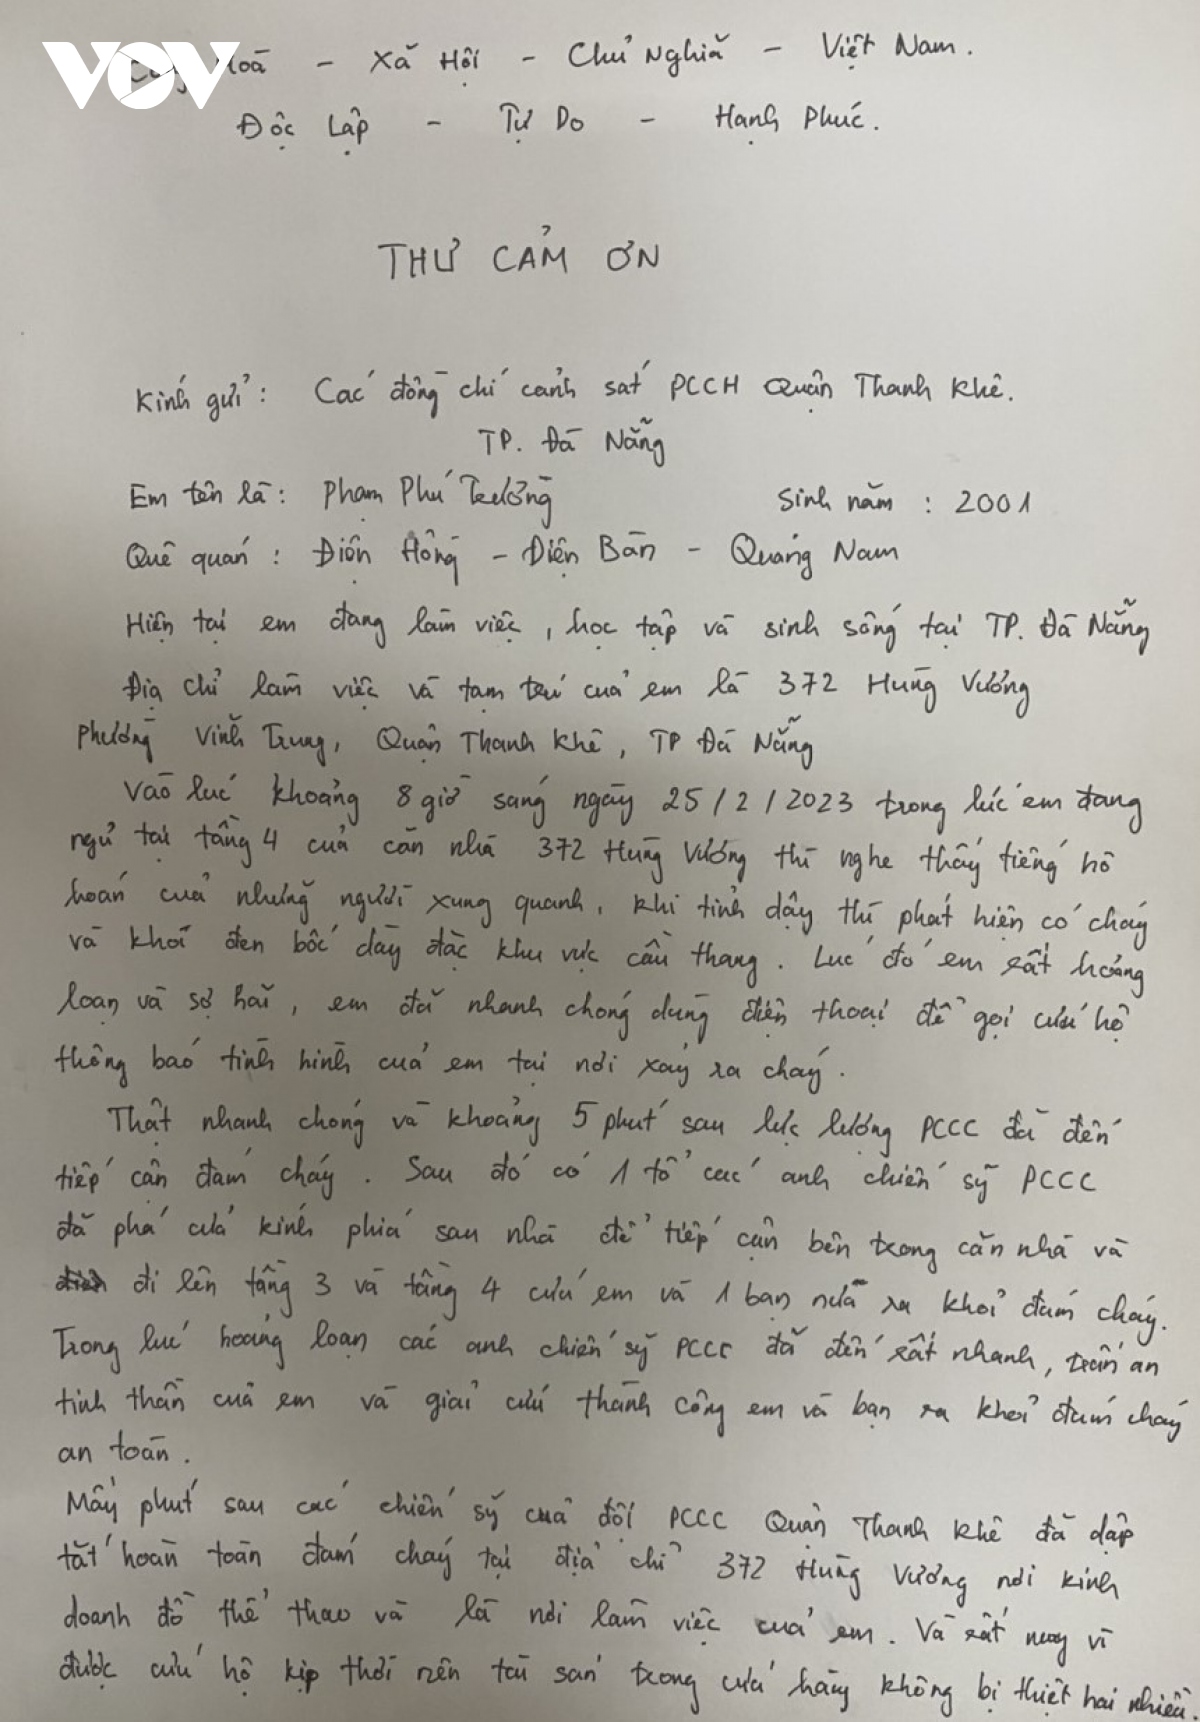 VOV
Hoà - Xã Hội - Chủ Nghĩa - Việt Nam.
Độc Lập - Tự Do - Hạnh Phúc.
THƯ CẢM ƠN
Kính gửi : Các đồng chí cảnh sát PCCH Quận Thanh Khê.
TP. Đà Nẵng
Em tên là : Phạm Phú Trường Sinh năm : 2001
Quê quán : Điện Hồng - Điện Bàn - Quảng Nam
Hiện tại em đang làm việc, học tập và sinh sống tại TP. Đà Nẵng
Địa chỉ làm việc và tạm trú của em là 372 Hùng Vương
Phường Vĩnh Trung, Quận Thanh Khê, TP Đà Nẵng
Vào lúc khoảng 8 giờ sáng ngày 25/2/2023 trong lúc em đang
ngủ tại tầng 4 của căn nhà 372 Hùng Vương thì nghe thấy tiếng hô
hoán của những người xung quanh, khi tỉnh dậy thì phát hiện có cháy
và khói đen bốc dày đặc khu vực cầu thang. Lúc đó em rất hoảng
loạn và sợ hãi, em đã nhanh chóng dùng điện thoại để gọi cứu hộ
thông báo tình hình của em tại nơi xảy ra cháy.
Thật nhanh chóng và khoảng 5 phút sau lực lượng PCCC đã đến
tiếp cận đám cháy. Sau đó có 1 tổ các anh chiến sỹ PCCC
đã phá cửa kính phía sau nhà để tiếp cận bên trong căn nhà và
đi lên tầng 3 và tầng 4 cứu em và 1 bạn nữa ra khỏi đám cháy.
Trong lúc hoảng loạn các anh chiến sỹ PCCC đã đến rất nhanh, trấn an
tinh thần của em và giải cứu thành công em và bạn ra khỏi đám cháy
an toàn.
Mấy phút sau các chiến sỹ của đội PCCC Quận Thanh Khê đã dập
tắt hoàn toàn đám cháy tại địa chỉ 372 Hùng Vương nơi kinh
doanh đồ thể thao và là nơi làm việc của em. Và rất may vì
được cứu hộ kịp thời nên tài sản trong cửa hàng không bị thiệt hại nhiều.